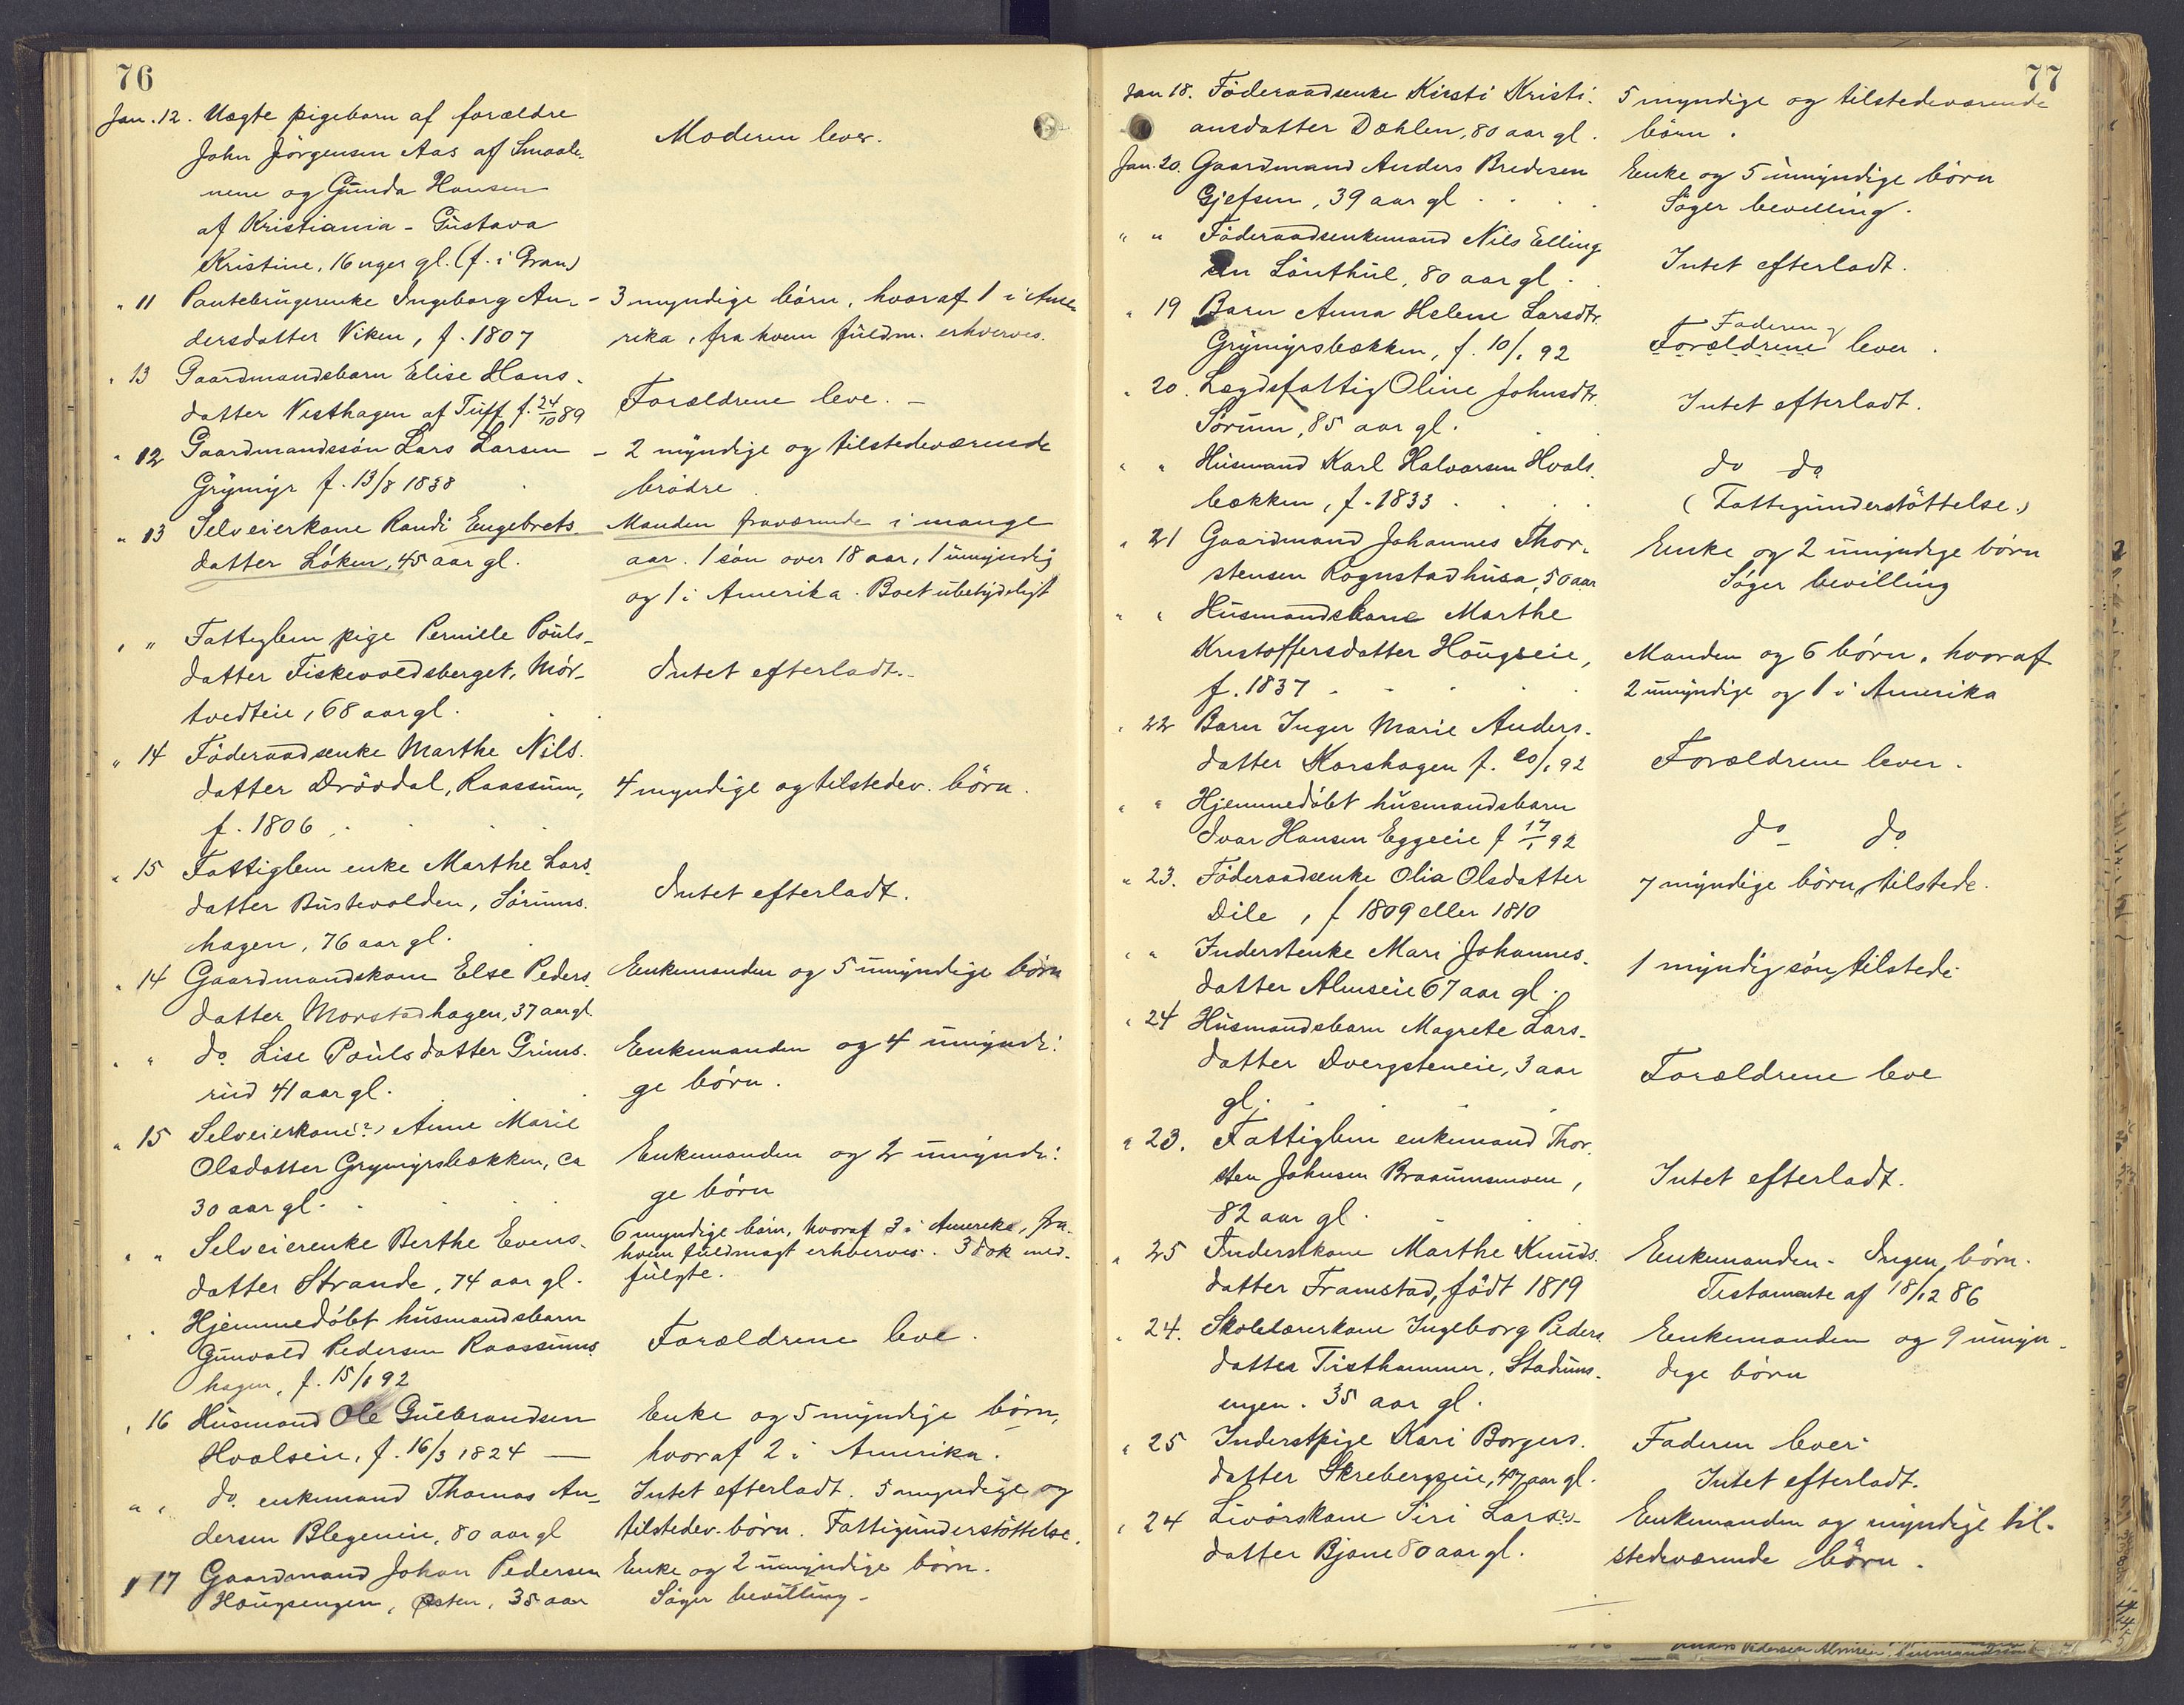 76
Jan. 12. Uægte pigebarn af forældre
John Jörgensen Aas af Smaale-
nene og Gunda Hansen
af Kristiania - Gustava
Kristine, 16 uger gl. (f. i Gran)
Moderen lever.
" 11 Pantebrugerenke Ingeborg An-
dersdatter Viken, f. 1807
3 myndige börn, hvoraf 1 i Ame-
rika, fra hvem fuldm. erhverves.
" 13 Gaardmandsbarn Elise Hans-
datter Vesthagen af Tuff f. 24/10 89
Forældrene leve. -
" 12 Gaardmandssön Lars Larsen
Grymyr f. 13/8 1838
- 2 myndige og tilstedeværende
brödre
" 13 Selveierkone Randi Engebrets-
datter Löken, 45 aar gl.
Manden fraværende i mange
aar. 1 sön over 18 aar, 1 umyndig
og 1 i Amerika. Boet ubetydeligt
" " Fattiglem pige Pernille Pouls-
datter Fiskevoldsberget, Mör-
tvedteie, 68 aar gl.
Intet efterladt.-
" 14 Föderaadsenke Marthe Nils-
datter Drövdal, Raassum,
f. 1806
4 myndige og tilstedev. börn.
" 15 Fattiglem enke Marthe Lars-
datter Bustevolden, Sörums-
hagen, 76 aar gl.
Intet efterladt.
" 14 Gaardmandskone Else Peders-
datter Morstadhagen, 37 aar gl.
Enkemanden og 5 umyndige börn
" " do. Lise Poulsdatter Grims-
rud 41 aar gl.
Enkemanden og 4 umyndi-
ge börn.
" 15 Selveierkone(?) Anne Marie
Olsdatter Grymyrsbækken, ca
30 aar gl.
Enkemanden og 2 umyndi-
ge börn
" " Selveierenke Berthe Evens-
datter Strande, 74 aar gl.
6 myndige börn, hvoraf 3 i Amerika, fra
hvem fuldmagt erhverves. 3 dok med-
fulgte.
" " Hjemmedöbt husmandsbarn
Gunvald Pedersen Raassums-
hagen, f. 15/1 92
Forældrene leve.
" 16 Husmand Ole Gulbrandsen
Hvalseie, f. 16/3 1824 —
Enke og 5 myndige börn,
hvoraf 2 i Amerika.
" " do. enkemand Thomas An-
dersen Blegeneie, 80 aar gl
Intet efterladt. 5 myndige og
tilstedev. börn. Fattigunderstöttelse.
" 17 Gaardmand Johan Pedersen
Haugsengen, östen, 35 aar
Enke og 2 umyndige börn.
Söger bevilling -
77
Jan 18. Föderaadsenke Kirsti Kristi-
ansdatter Dæhlen, 80 aar gl.
5 myndige og tilstedeværende
börn.
Jan. 20. Gaardmand Anders Bredesen
Gjefsen, 39 aar gl
Enke og 5 umyndige börn
Söger bevilling.
" " Föderaadsenkemand Nils Elling
sen Lönthul, 80 aar gl.
Intet efterladt.
" 19 Barn Anna Helene Larsdtr.
Grymyrsbækken, f. 10/1 92
Faderen
Forældrene lever.
" 20. Lægdsfattig Oline Johnsdtr.
Sörum, 85 aar gl.
Intet efterladt.
" " Husmand Karl Halvorsen Hvals-
bækken, f. 1833
do do
(Fattigunderstöttelse)
" 21 Gaardmand Johannes Thor-
stensen Rognstadhusa, 50 aar
Enke og 2 umyndige börn
Söger bevilling
" " Husmandskone Marthe
Kristoffersdatter Haugseie,
f. 1837
Manden og 6 börn, hvoraf
2 umyndige og 1 i Amerika
" 22 Barn Inger Marie Anders-
datter Korshagen f. 20/1 92
Forældrene lever.
" " Hjemmedöbt husmandsbarn
Ivar Hansen Eggeeie f 17/1 92
do do
" 23. Föderaadsenke Olia Olsdatter
Dile, f 1809 eller 1810
7 myndige börn, tilstede.
" " Inderstenke Mari Johannes-
datter Almseie 67 aar gl.
1 myndig sön, tilstede
" 24 Husmandsbarn Magrete Lars-
datter Dvergsteneie, 3 aar
gl.
Forældrene leve
" 23. Fattiglem enkemand Thor-
sten Johnsen Braaumsmoen,
82 aar gl.
Intet efterladt.
" 25 Inderstkone Marthe Knuds-
datter Framstad, födt 1819
Enkemanden. Ingen börn.
Testamente af 18/12 86
" 24. Skolelærerkone Ingeborg Peders-
datter Tisthammer, Stadums-
engen. 35 aar gl.
Enkemanden og 9 umyn-
dige börn
" 25 Inderstpige Kari Borgers-
datter Skrebergseie, 47 aar gl.
Faderen lever
Intet efterladt.
" 24 Livörskone Siri Lars(?)-
datter Bjone 80 aar gl.
Enkemanden og myndige til-
stedeværende börn.